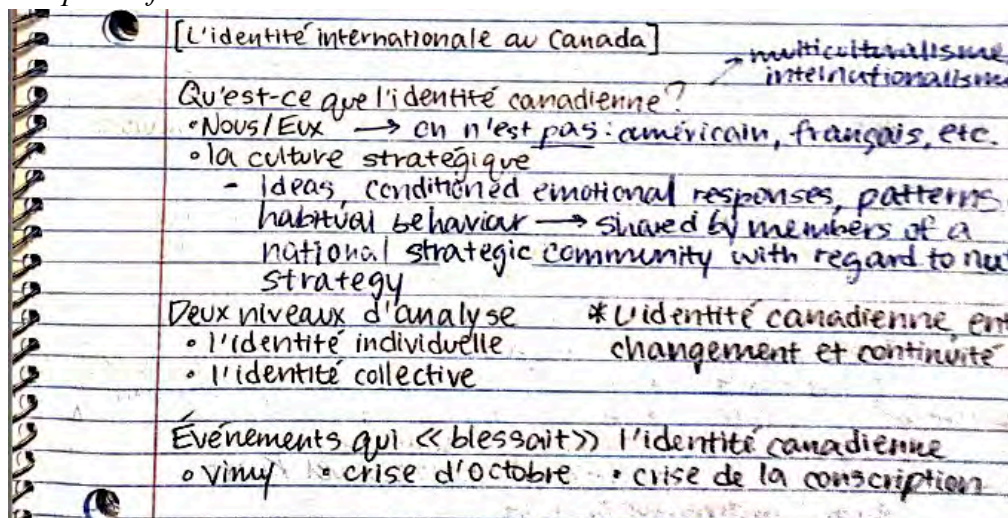 [L'identité internationale au Canada]
→ multiculturalisme,
internationalisme
Qu'est-ce que l'identité canadienne?
• Nous/Eux → on n'est pas: américain, français, etc.
• la culture stratégique
- Ideas, conditioned emotional responses, patterns
habitual behaviour → shared by members of a
national strategic community with regard to
strategy
Deux niveaux d'analyse * L'identité canadienne, ent
• l'identité individuelle changement et continuité
• l'identité collective
Événements qui << blessait >> l'identité canadienne
• Vimy • crise d'octobre • crise de la conscription